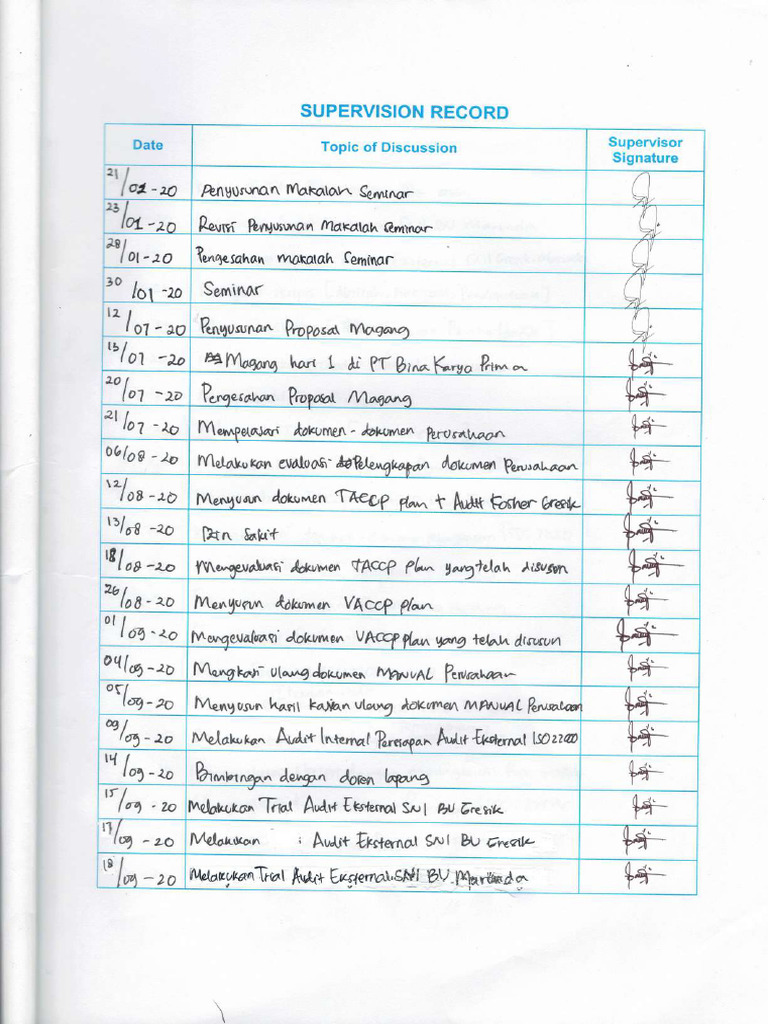 SUPERVISION RECORD
Date Topic of Discussion Supervisor Signature
21/01-20 Penyusunan Makalah Seminar
23/01-20 Revisi Penyusunan Makalah Seminar
28/01-20 Pengesahan makalah Seminar
30/01-20 Seminar
12/07-20 Penyusunan Proposal Magang
13/07-20 Magang hari 1 di PT Bina Karya Prima
20/07-20 Pengesahan Proposal Magang
21/07-20 Mempelajari dokumen-dokumen Perusahaan
06/08-20 Melakukan evaluasi Pelengkapan dokumen Perusahaan
12/08-20 Menyusun dokumen TACCP plan + Audit Kosher Gresik
13/08-20 Izin Sakit
18/08-20 Mengevaluasi dokumen TACCP plan yang telah disusun
26/08-20 Menyusun dokumen VACCP plan
01/09-20 Mengevaluasi dokumen VACCP plan yang telah disusun
04/09-20 Mengkaji ulang dokumen MANUAL Perusahaan
05/09-20 Menyusun hasil kajian ulang dokumen MANUAL Perusahaan
09/09-20 Melakukan Audit Internal Persiapan Audit Eksternal ISO 22000
14/09-20 Bimbingan dengan dosen lapang
15/09-20 Melakukan Trial Audit Eksternal SNI BU Gresik
17/09-20 Melakukan : Audit Eksternal SNI BU Gresik
18/09-20 Melakukan Trial Audit Eksternal SNI BU Marunda